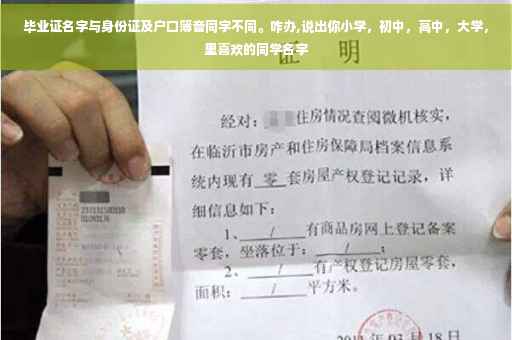 毕业证名字与身份证及户口簿音同字不同。咋办,说出你小学，初中，高中，大学，
里喜欢的同学名字
证 明
经对：住房情况查阅微机核实，
在临沂市房产和住房保障局档案信息系
统内现有 零 套房屋产权登记记录，详
细信息如下：
1、 / 有商品房网上登记备案
零套，坐落位于： / ；
2、 / 有产权登记房屋零套，
面积： / 平方米。
月18日